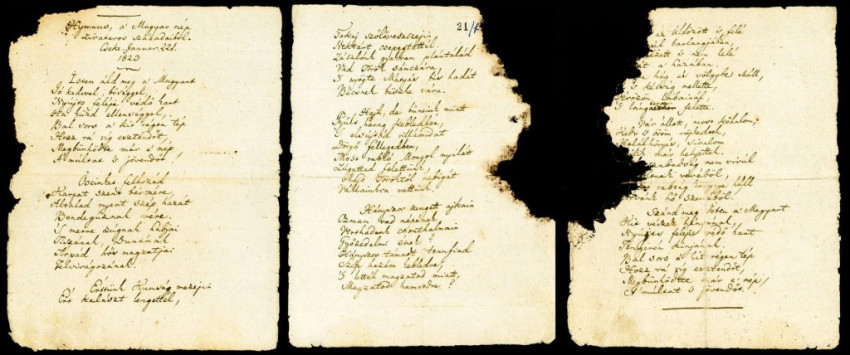 Hymnus, a' Magyar nép
zivataros századaiból.
Cseke, Januar. 22d.
1823
Isten áldd meg a' Magyart
Jó kedvel, bőséggel,
Nyújts feléje védő kart
Ha küzd ellenséggel;
Bal sors a' kit régen tép
Hozz rá víg esztendőt,
Megbünhödte már e' nép
A' multat 's jövendőt!
Őseinket felhozád
Kárpát szent bérczére,
Általad nyert szép hazát
Bendegúznak vére.
'S merre zúgnak habjai
Tiszának, Dunának,
Árpád hős magzatjai
Felvirágozának.
Értünk Kunság mezejin
Ért kalászt lengettél,
21/1
Tokaj szőlővesszejin
Nektárt csepegtettél.
Zászlónk gyakran plántálád
Vad török sánczára,
'S nyögte Mátyás' bús hadát
Bécsnek büszke vára.
Hajh, de bűneink miatt
Gyúlt harag kebledben,
'S elsújtád villámidat
Dörgő fellegedben,
Most rabló Mongol nyilát
Zúgattad felettünk,
Majd Töröktől rabigát
Vállainkra vettünk.
Hányszor zengett ajkain
Ozman vad népének
Vert hadunk csonthalmain
Győzedelmi ének!
Hányszor támadt tenfiad
Szép hazám kebledre,
'S lettél magzatod miatt
Magzatod hamvvedre?
az üldözött 's felé
barlangjában,
lelé
a' hazában.
hág és völgybe száll,
's kétség mellette,
Vérözön lábainál,
'S lángtenger felette.
Vár állott, most kőhalom;
Kedv 's öröm röpkedtek,
Halálhörgés, siralom
már helyettek.
szabadság nem virúl
véréből,
rabság könnye hűll
hő szeméből.
Szánd meg Isten a' Magyart
Kit vészek hányának,
Nyújts felejte védő kart
Tengerén kínjának.
Bal sors a' kit régen tép
Hozz rá víg esztendőt,
Megbünhödte már e' nép
A' multat 's jövendőt.